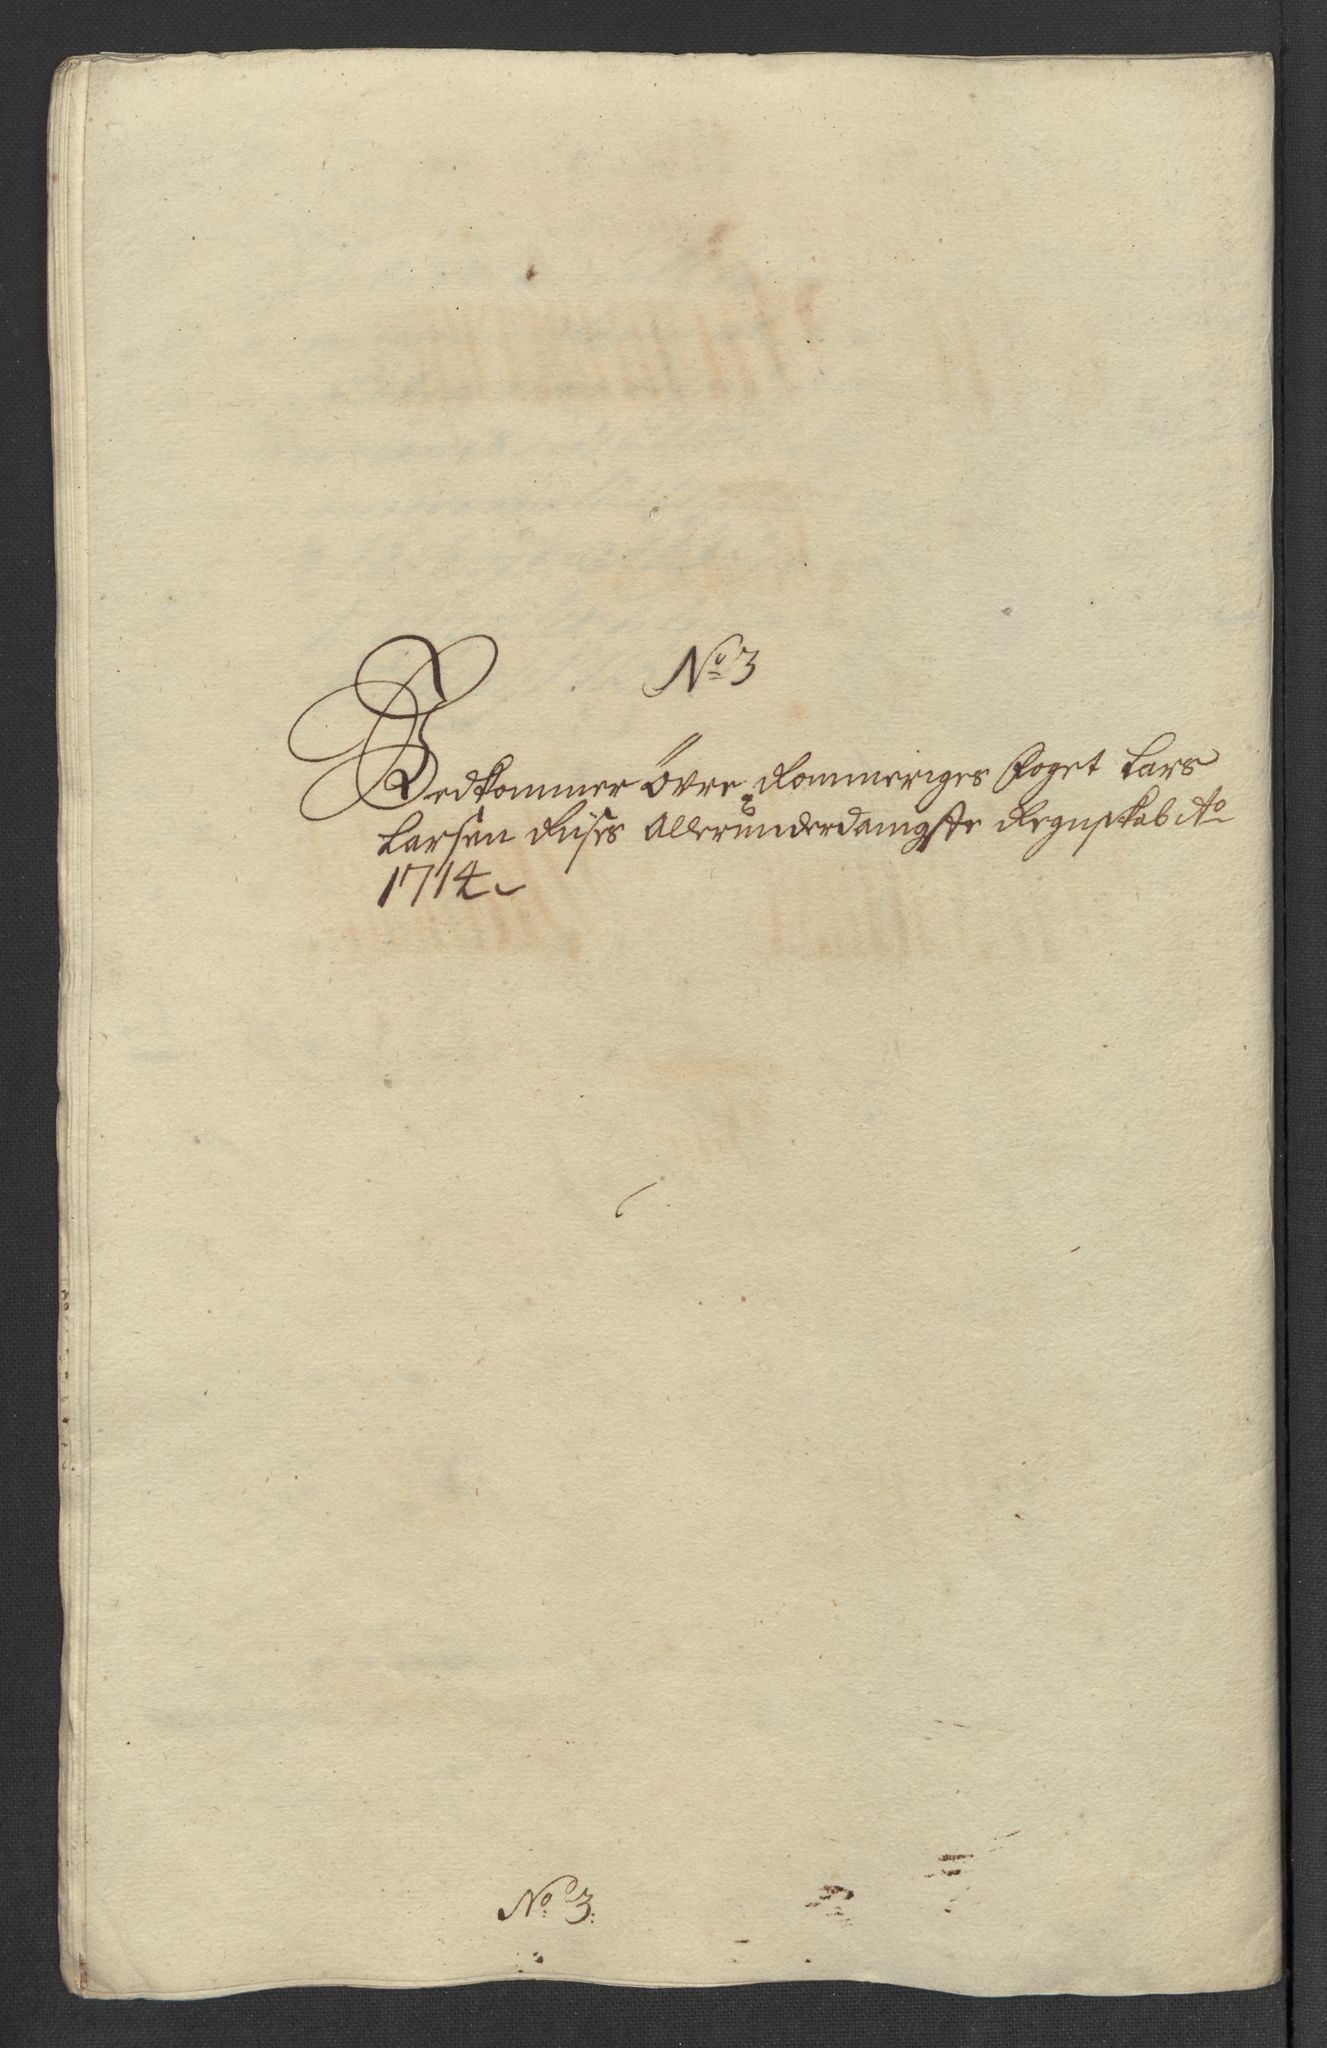 No 3
Vedkommer Övre Rommeriges Foget Lars
Larsen Riises Allerunderdanigste Regnskab Ao
1714
No 3.